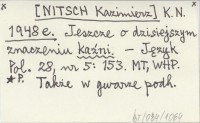 [NITSCH Kazimierz] K.N.
1948 e. Jeszcze o dzisiejszym
znaczeniu kaźni. — Język
Pol. 28, nr 5: 153. MT, WHP.
*P. Także w gwarze podh.